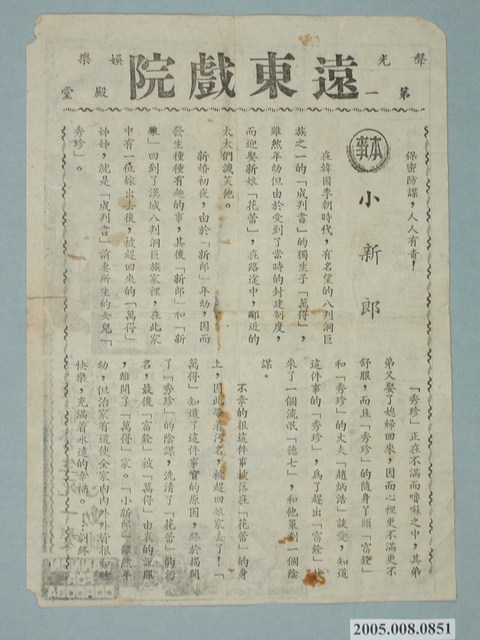 聲光第一
遠東戲院
娛樂殿堂
保密防諜，人人有責！
本事
小新郎
在韓國李朝時代，有名望的八判洞巨
族之一的「成判書」的獨生子「萬得」，
雖然年幼但由於受到了當時的封建制度，
而迎娶新娘「花蕾」，在路途中，鄰近的
太太們譏笑他。
新婚初夜，由於「新郎」年幼，因而
發生種種有趣的事，其後「新郎」和「新
娘」回到了漢城八判洞巨族家裡，在此家
中有一位嫁出去後，被趕回來的「萬得」
姊姊，就是「成判書」前妻所生的女兒「
秀珍」。
「秀珍」正在不滿而嘈囌之中，其弟
弟又娶了媳婦回來，因而心裡更不滿更不
舒服，而且「秀珍」的隨身丫頭「富銓」
和「秀珍」的丈夫「趙炳浩」談愛，知道
這件事的「秀珍」，爲了趕出「富銓」
來了一個流氓「德七」，和他策劃一個陰
謀。
不幸的很這件事被落在「花蕾」的身
上，因此帶著污名，被趕回娘家去了！「
萬得」知道了這件事實的原因，終於揭開
了「秀珍」的陰謀，洗清了「花蕾」的污
名，最後「富銓」被「萬得」由衷的說服
，離開了「萬得」家。「小新郎」雖然年
幼，但治家有道使全家內內外外皆很和睦
快樂，充滿着永遠的幸福。……劇終
2005.008.0851